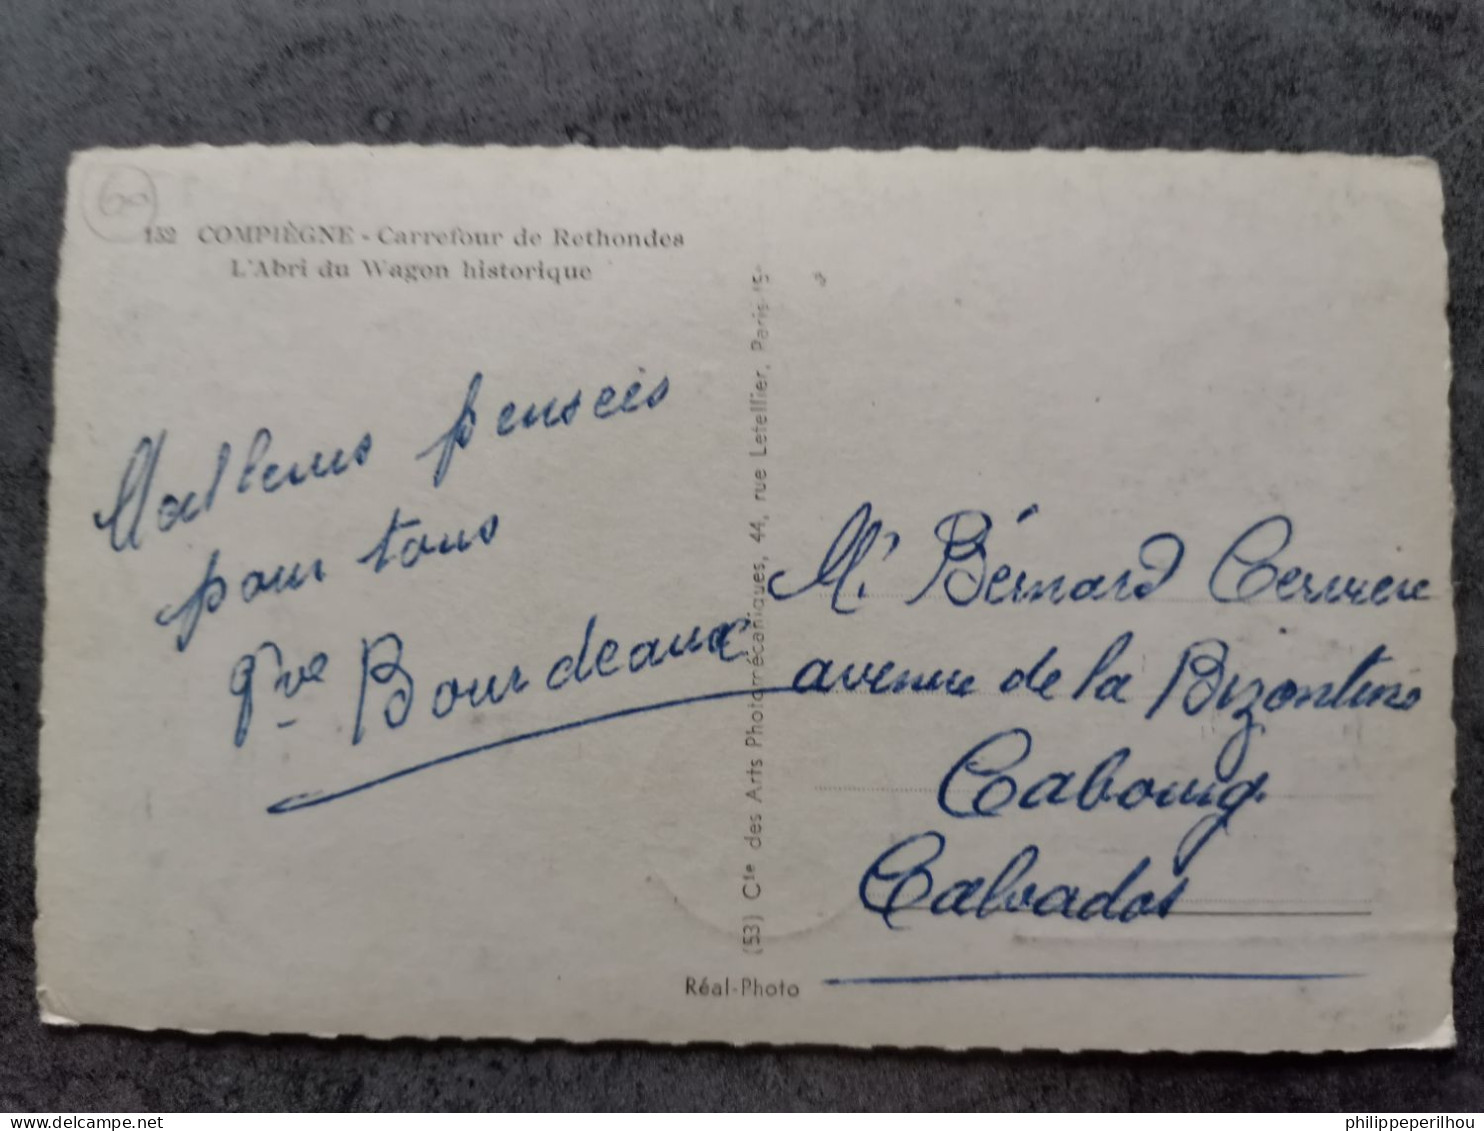 60
132 COMPIÈGNE - Carrefour de Rethondes
L'Abri du Wagon historique
pensées
pour tous
Bourdeaux
(53) Cie des Arts Photomécaniques, 44, rue Letellier, Paris-15e
Réal-Photo
M. Bérnard
avenue de la
Cabourg
Calvados
delcampe.net
philippeperilhou